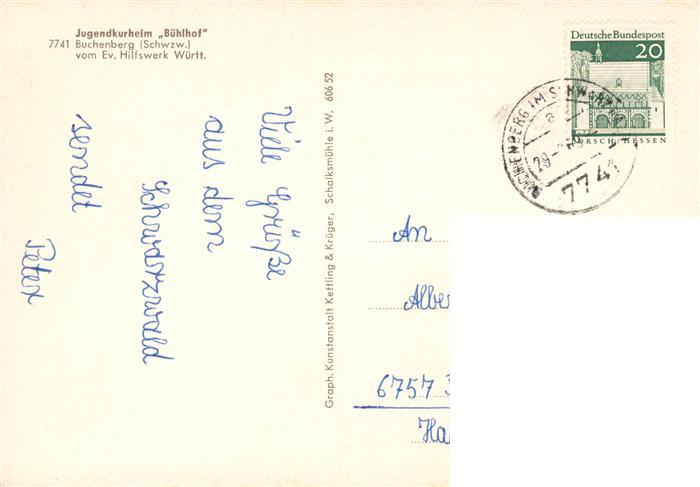 Jugendkurheim „Bühlhof"
7741 Buchenberg (Schwzw.)
vom Ev. Hilfswerk Württ.
Viele Grüße
aus dem
Schwarzwald
sendet
Peter
Graph. Kunstanstalt Kettling & Krüger, Schalksmühle i. W. 606 52
Deutsche Bundespost
20
LORSCH/HESSEN
BUCHENBERG IM SCHWARZWALD
a
7741
An
Alber
6757
Ha